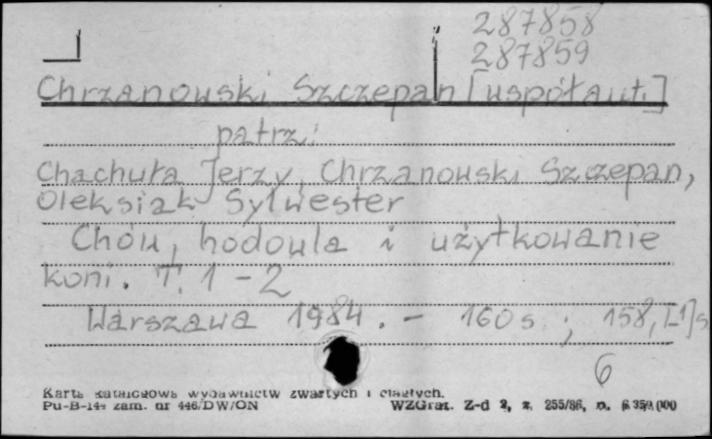 287858
287859
Chrzanowski Szczepan [współaut.]
patrz:
Chachuła Jerzy, Chrzanowski Szczepan,
Oleksiak Sylwester
Chów, hodowla i użytkowanie
koni. T. 1-2
Warszawa 1984. - 160 s ; 158, [1] s
6
Karta katalogowa wydawnictw zwartych i ciągłych.
Pu-B-144 zam. nr 446/DW/ON WZGraf. Z-d 2, z. 255/86, n.